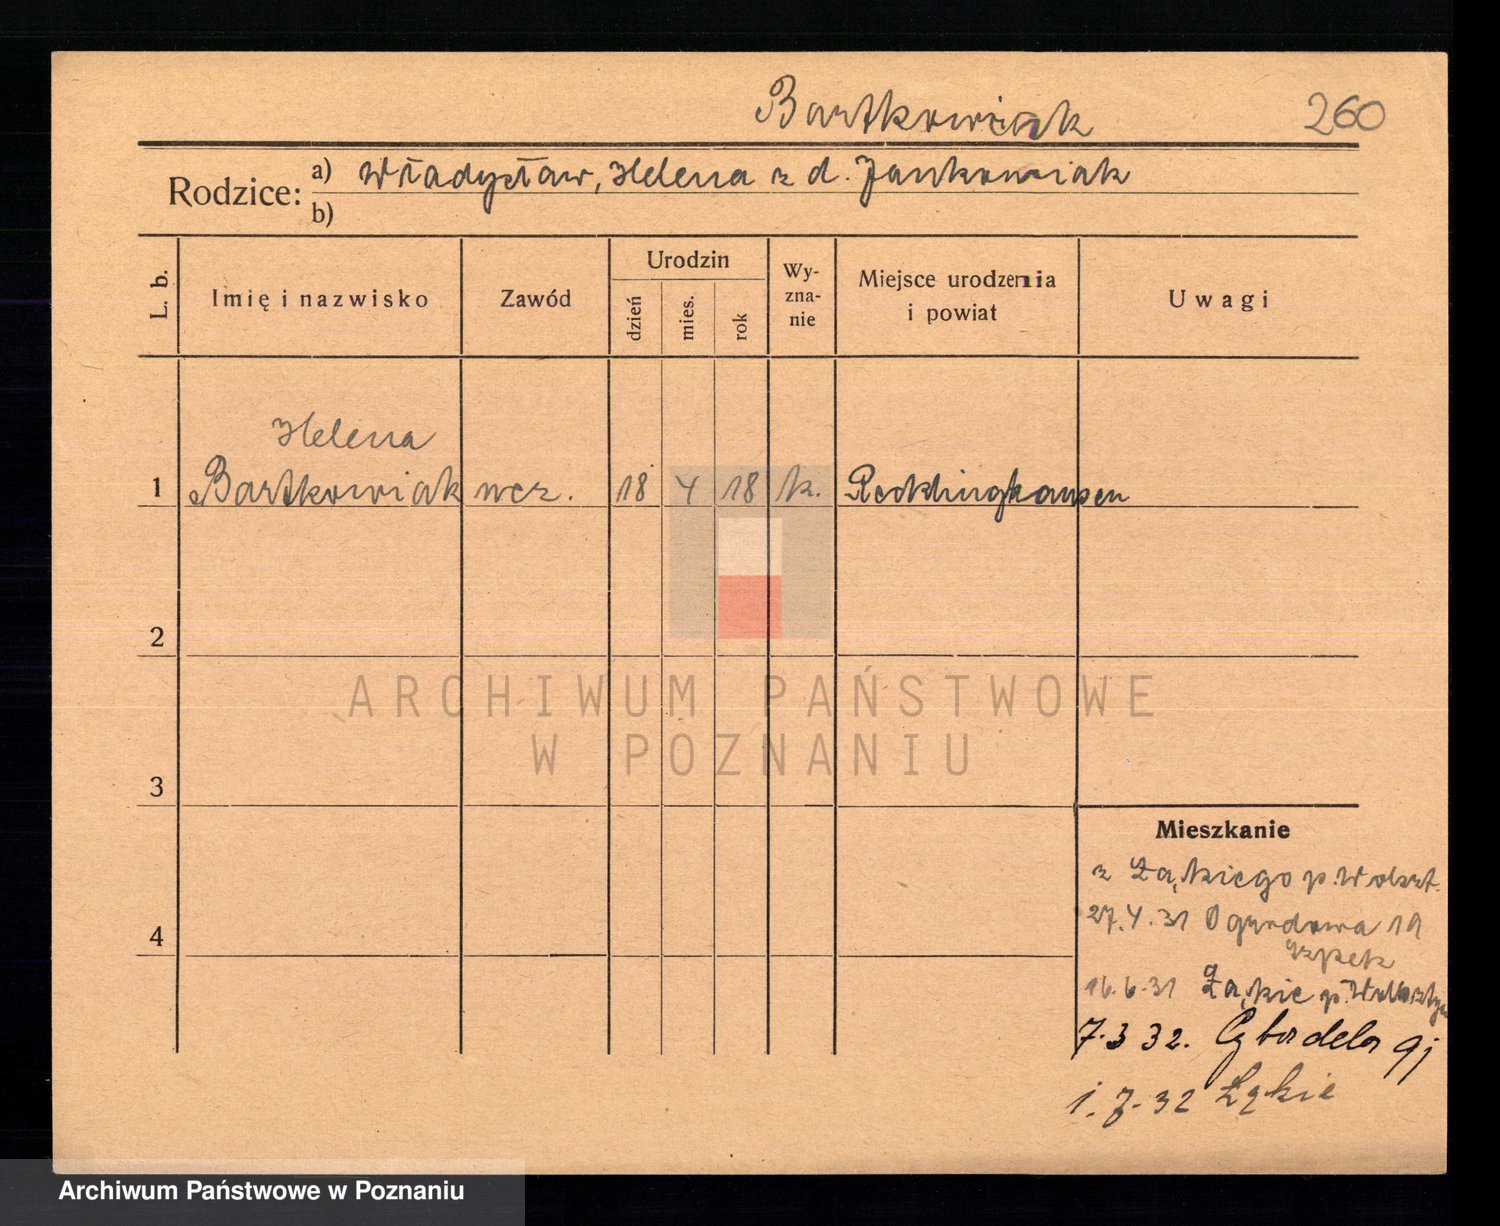 Bartkowiak 260
Rodzice: a) Władysław, Helena z d. Jankowiak
b)
L. b. Imię i nazwisko Zawód Urodzin dzień mies. rok Wy-zna-nie Miejsce urodzenia i powiat Uwagi
Helena
1 Bartkowiak ucz. 18 4 18 k. Recklinghausen
2
ARCHIWUM PAŃSTWOWE
W POZNANIU
3
Mieszkanie
z Łąkiego p. Wolszt.
27.4.31 Ogrodowa 19
4
16.6.31 Łąkie p. Wolsztyn
7.3 32. Cytadela
1.7.32 Łąkie
Archiwum Państwowe w Poznaniu